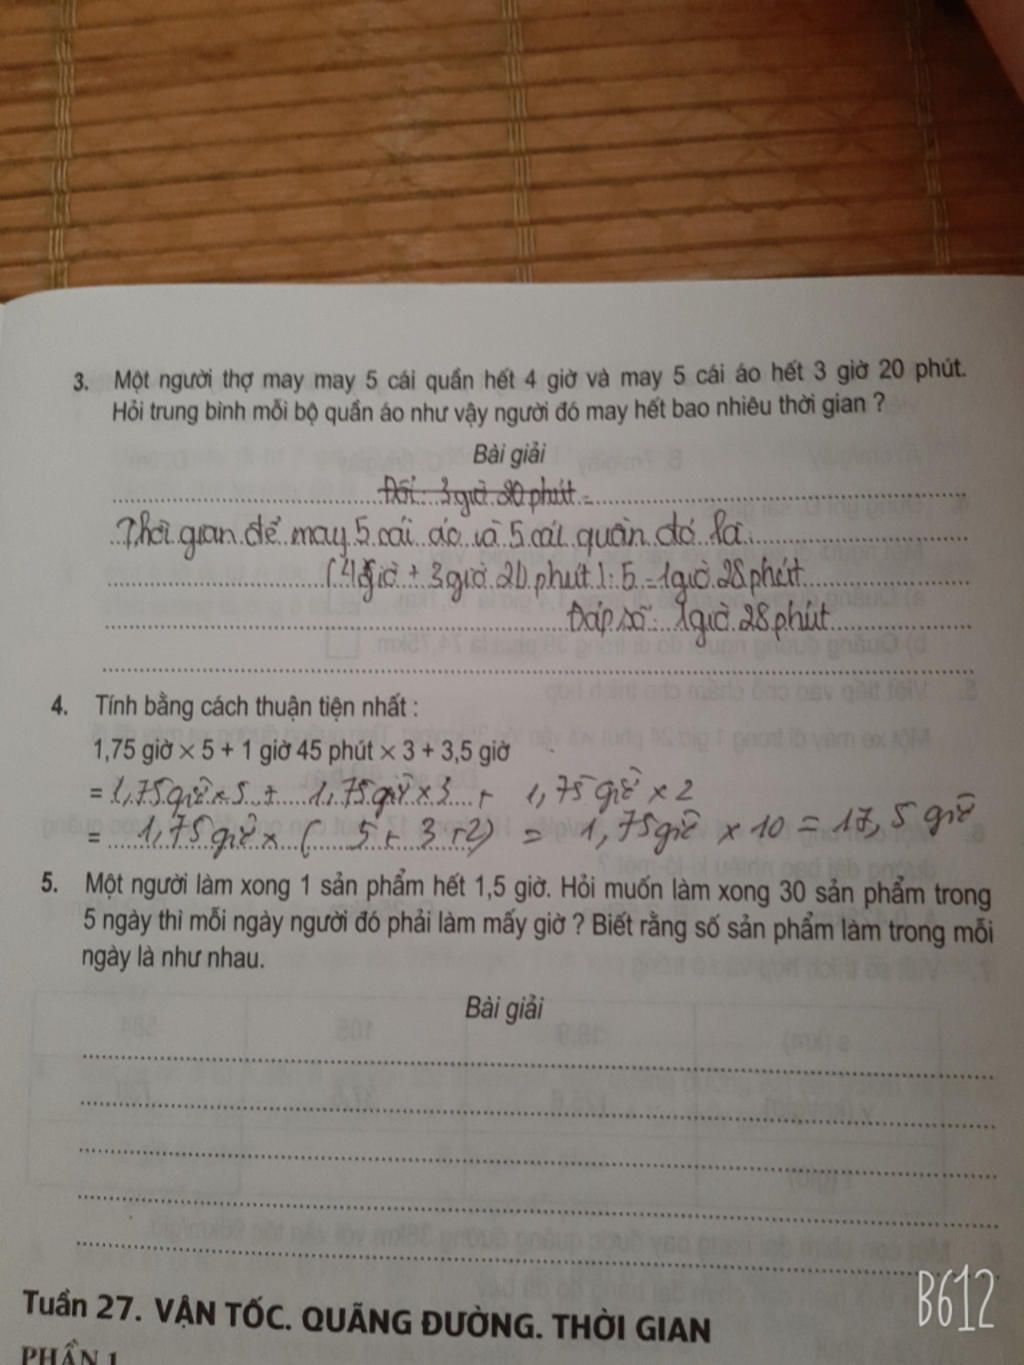 3. Một người thợ may may 5 cái quần hết 4 giờ và may 5 cái áo hết 3 giờ 20 phút.
Hỏi trung bình mỗi bộ quần áo như vậy người đó may hết bao nhiêu thời gian ?
Bài giải
Đổi: 3 giờ 20 phút =
Thời gian để may 5 cái áo và 5 cái quần đó là
(4 giờ + 3 giờ 20 phút) : 5 = 1 giờ 28 phút
Đáp số: 1 giờ 28 phút
4. Tính bằng cách thuận tiện nhất :
1,75 giờ × 5 + 1 giờ 45 phút × 3 + 3,5 giờ
= 1,75 giờ × 5 + 1,75 giờ × 3 + 1,75 giờ × 2
= 1,75 giờ × ( 5 + 3 + 2) = 1,75 giờ × 10 = 17,5 giờ
5. Một người làm xong 1 sản phẩm hết 1,5 giờ. Hỏi muốn làm xong 30 sản phẩm trong
5 ngày thì mỗi ngày người đó phải làm mấy giờ ? Biết rằng số sản phẩm làm trong mỗi
ngày là như nhau.
Bài giải
Tuần 27. VẬN TỐC. QUÃNG ĐƯỜNG. THỜI GIAN
PHẦN 1
B612